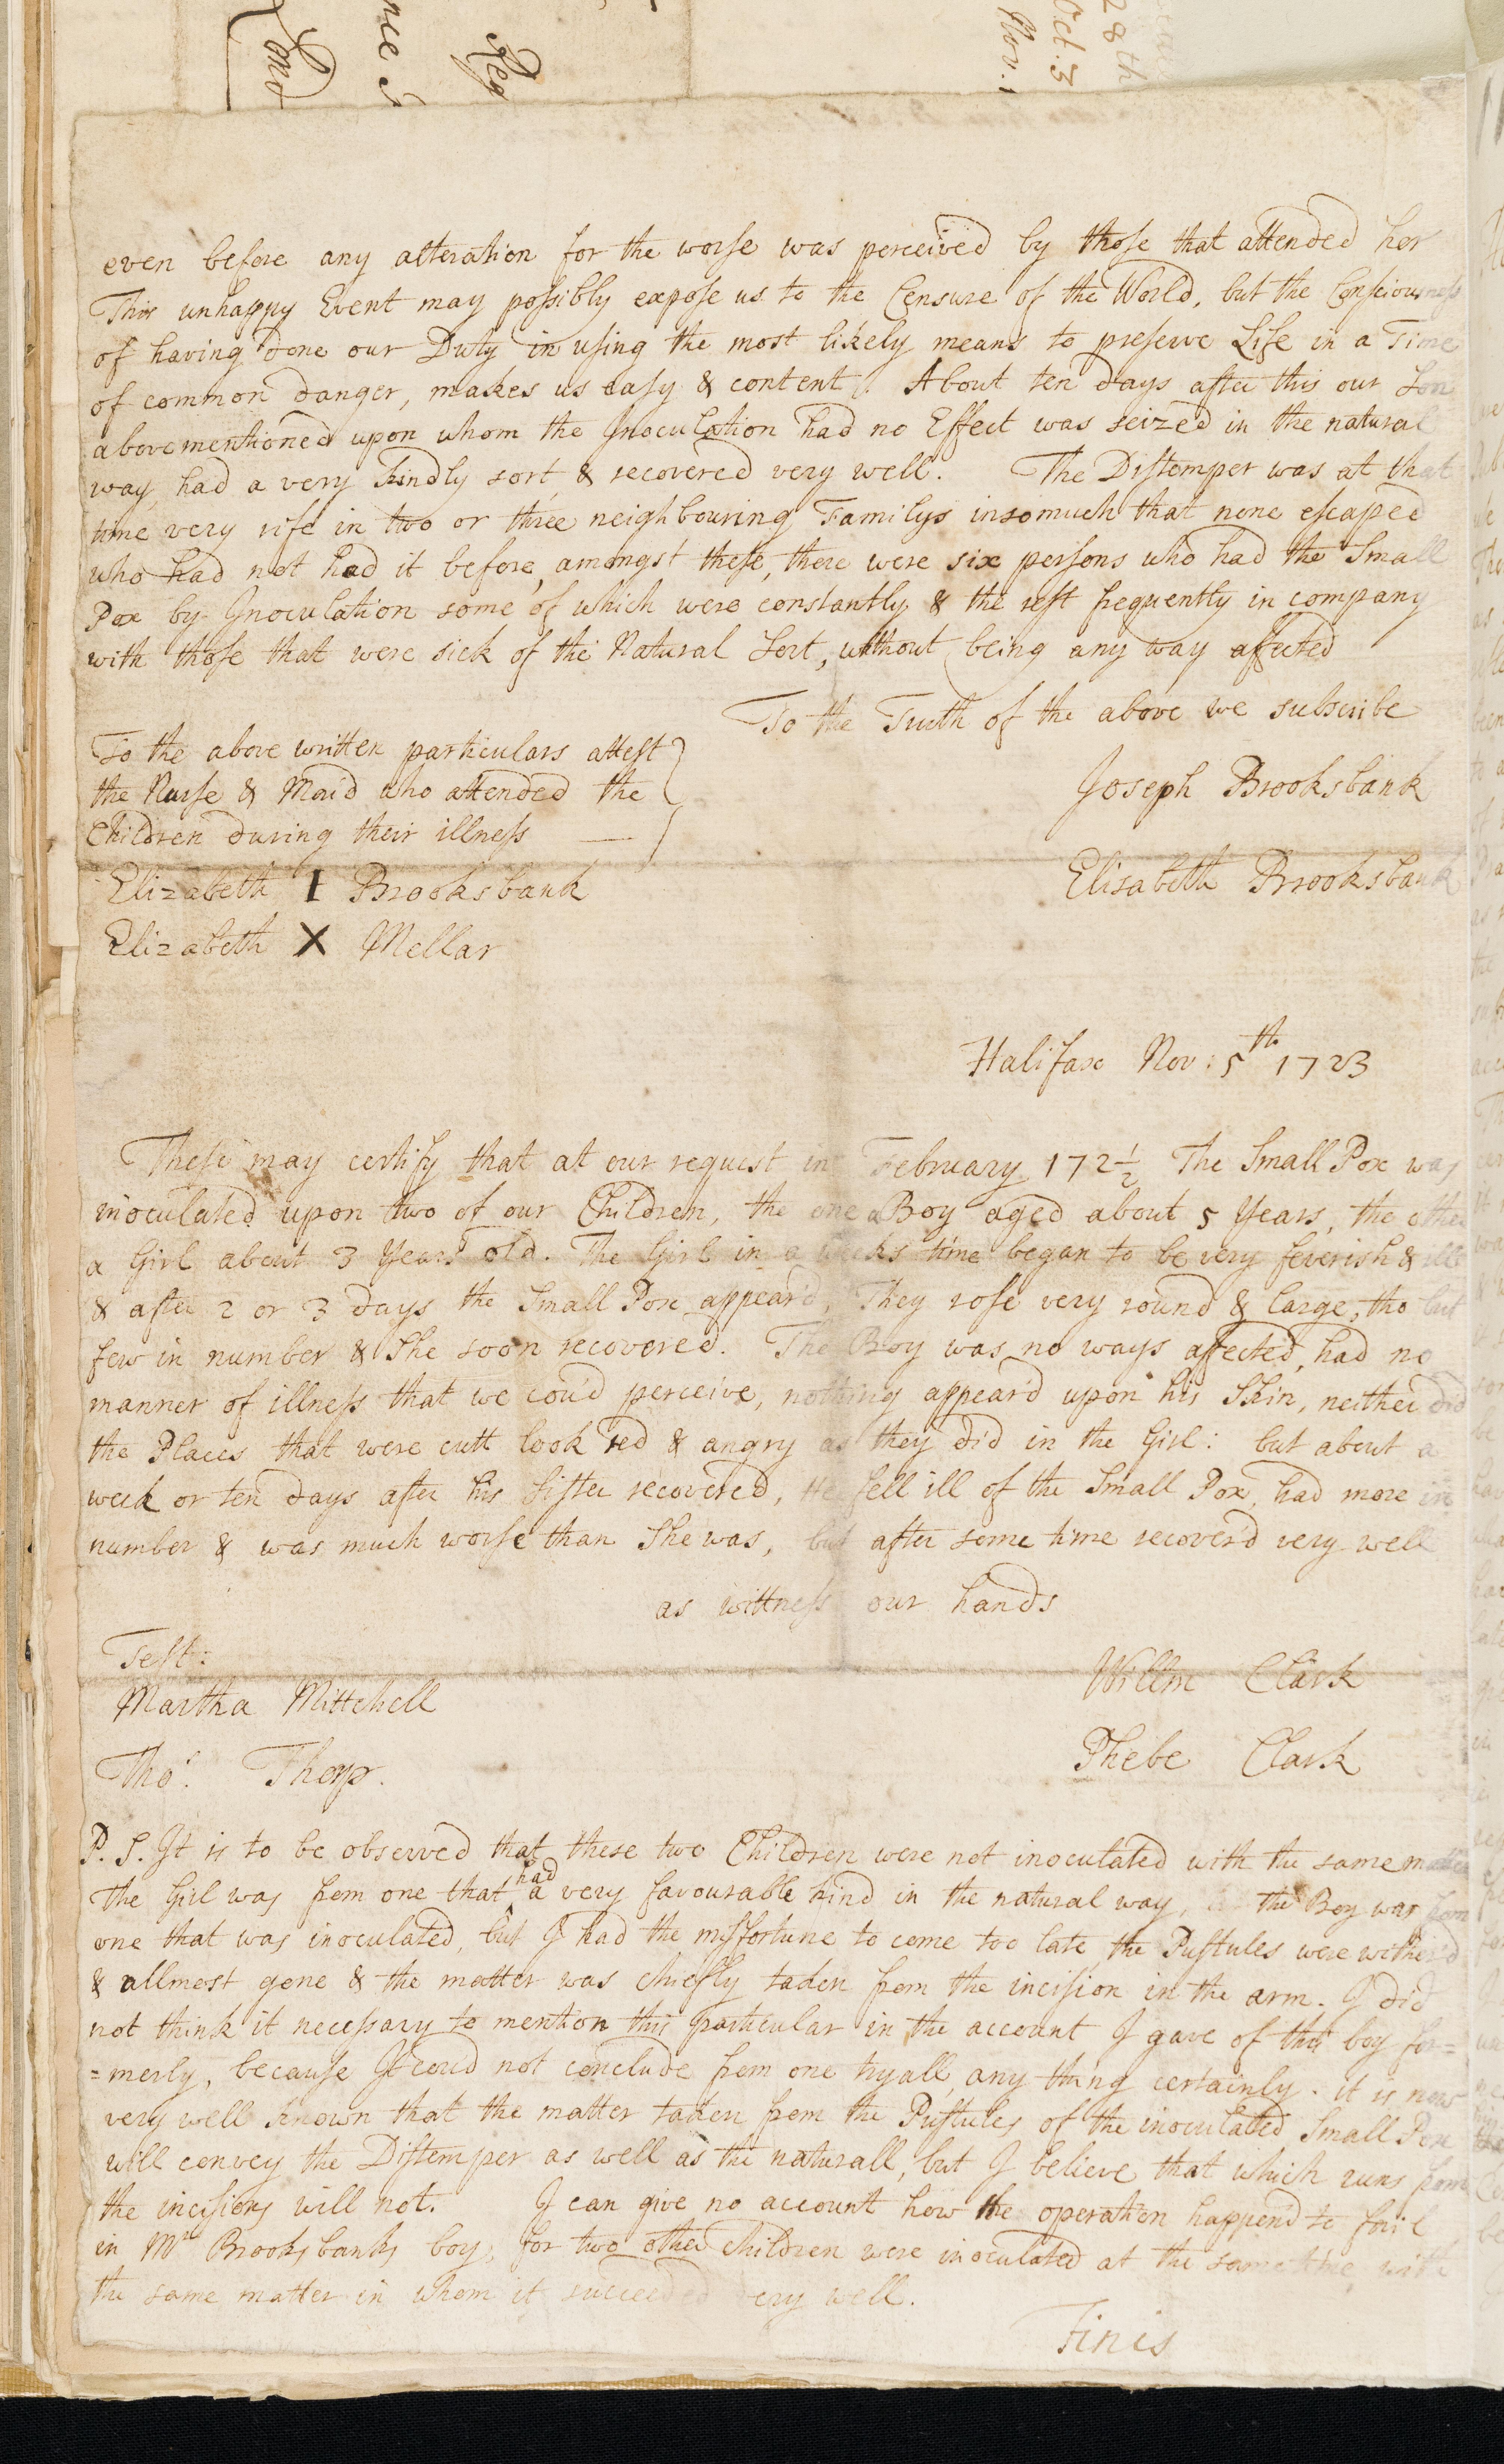 even before any alteration for the worse was perceived by those that attended her
This unhappy Event may possibly expose us to the Censure of the World, but the Consciousness
of having done our Duty in using the most likely means to preserve Life in a Time
of common danger, makes us easy & content. About ten days after this our Son
abovementioned upon whom the Inoculation had no Effect was seized in the natural
way, had a very kindly sort & recovered very well. The Distemper was at that
time very rife in two or three neighbouring Familys insomuch that none escaped
who had not had it before, amongst these, there were six persons who had the Small
Pox by Inoculation some of which were constantly & the rest frequently in company
with those that were sick of the Natural Sort, without being any way affected
To the Truth of the above we subscribe
To the above written particulars attest
the Nurse & Maid who attended the
Children during their illness —
Joseph Brooksbank
Elisabeth Brooksbank
Elizabeth I Brooksbank
Elizabeth X Mellar
Halifax Nov: 5th 1723
These may certify that at our request in February 172½ The Small Pox was
inoculated upon two of our Children, the one a Boy aged about 5 Years, the other
a Girl about 3 Years old. The Girl in a weeks time began to be very feverish & ill
& after 2 or 3 days the Small Pox appear'd, They rose very round & large, tho but
few in number & She soon recovered. The Boy was no ways affected, had no
manner of illness that we cou'd perceive, nothing appear'd upon his Skin, neither did
the Places that were cutt look red & angry as they did in the Girl: but about a
week or ten days after his Sister recovered, He fell ill of the Small Pox, had more in
number & was much worse than She was, but after some time recover'd very well
as wittness our hands
Test:
Martha Mittchell
Tho.s Thorp.
Willm Clark
Phebe Clark
P. S. It is to be observed that these two Children were not inoculated with the same matter
The Girl was from one that had a very favourable kind in the natural way, the Boy was from
one that was inoculated, but I had the missfortune to come too late, the Pustules were wither'd
& allmost gone & the matter was chiefly taken from the incision in the arm. I did
not think it necessary to mention this particular in the account I gave of this boy for=
=merly, because I cou'd not conclude from one tryall, any thing certainly. it is now
very well known that the matter taken from the Pustules of the inoculated Small Pox
will convey the Distemper as well as the naturall, but I believe that which runs from
the incisions will not. I can give no account how the operation happend to fail
in Mr Brooksbanks boy, for two other children were inoculated at the same time with
the same matter in whom it succeeded very well.
Finis